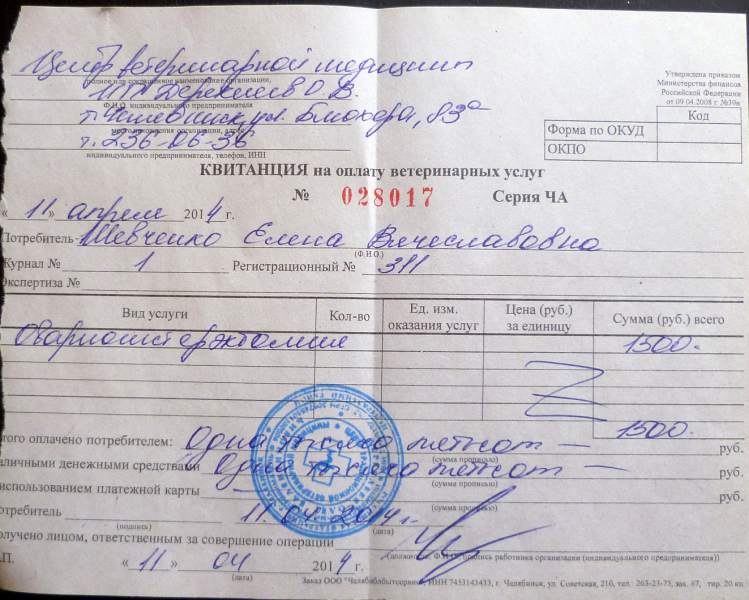 Центр ветеринарной медицины
полное или сокращенное наименование организации,
ИП Дерхилев О.В.
Ф.И.О. индивидуального предпринимателя
г. Челябинск, ул. Блюхера, 83а
местонахождение организации, адрес
т. 236-06-36
индивидуального предпринимателя, телефон, ИНН
Утверждена приказом
Министерства финансов
Российской Федерации
от 09.04.2008 г. №39н
Код
Форма по ОКУД
ОКПО
КВИТАНЦИЯ на оплату ветеринарных услуг
№ 028017 Серия ЧА
«11» апреля 2014 г.
Потребитель Шевченко Елена Вячеславовна
(Ф.И.О.)
Журнал № 1 Регистрационный № 311
Экспертиза №
Вид услуги Кол-во Ед. изм. оказания услуг Цена (руб.) за единицу Сумма (руб.) всего
Овариогистерэктомия 1500-
1500-
того оплачено потребителем: Одна тысяча пятьсот — руб.
(сумма прописью)
аличными денежными средствами Одна тысяча пятьсот — руб.
(сумма прописью)
использованием платежной карты руб.
(сумма прописью)
отребитель 11.04.2014 г.
(подпись) (дата)
олучено лицом, ответственным за совершение операции
(должность, Ф.И.О., подпись работника организации (индивидуального предпринимателя))
.П. «11» 04 2014 г.
(дата)
Заказ ООО "Челябблабытсервис", ИНН 7453143433, г. Челябинск, ул. Советская, 210, тел.: 263-23-73, зак. 67, тир. 20 кн.